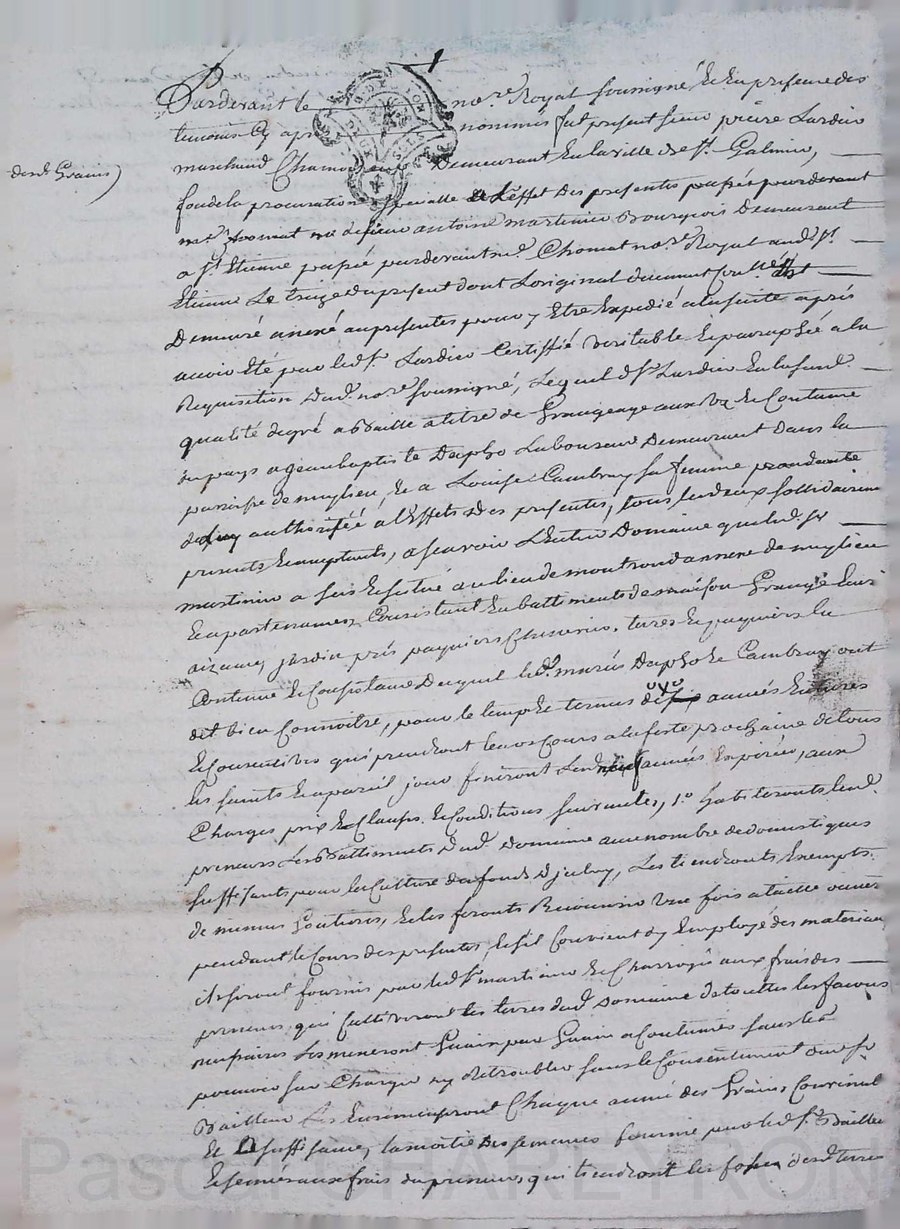 Pardevant le no.re Royal soussigné et en presence des
temoins cy apres nommés fut present sieur pierre Lardier
marchand demeurant en la ville de st. Galmier,
des d. Grains
fondé de procuration specialle a l'effet des presentes passée pardevant
me. no.re de sieur antoine martinier Bourgeois demeurant
a st. Etienne passée pardevant me. Chomat no.re Royal aud. st.
Etienne Le treze du present dont Loriginal duement est
demeuré anexé au presentes pour y Etre Expedié a la suite après
avoir Eté par led. sr. Lardier Certiffié veritable et paraphée a la
Requisition dud. no.re soussigné, Lequel d. sr. Lardier En la susd.
qualité degré a Baillé a titre de Grangeage aux us et Coutume
du pays a jean baptiste Dapho Laboureur demeurant dans la
paroisse de meylieu, et a Louise Cambray sa femme procedante
de luy authorisée a l'Effets des presentes, tous les deux sollidairement
presents Ecceptants, a scavoir L'Entier Domaine que led. sr.
martinier a sis et situé au lieu de montrond annexe de meylieu
et apartenances Consistant En battiments de maison Grange Ecurie
aizances, jardin prés paquiers Cheneviers, terres et paquiers la
Contenue et Consistance duquel led. mariés Dapho et Cambray ont
dit bien Connoitre, pour le temps et termes de neuf années Entieres
et Consecutives qui prendront leurs Cours a la feste prochaine de tous
les saints et a pareil jour finiront Lesd. neuf années Expirées, aux
Charges, prix et Clauses, et Conditions suivantes, 1.o habiteronts lesd.
preneurs Les Battiments dud. Domaine avec nombre de domestiques
suffisants pour la Culture des fonds d'jceluy, Les tiendronts Exempts
de menus Goutieres, et les feronts Recouvrir une fois a taille ouverte
pendant le Cours des presentes, et s'il Convient d'y Employé des materiaux
ils seront fournis par led. sr. martinier et Charroyé aux frais des
preneurs, qui Cultiveront les terres dud. Domaine de touttes les facons
necessaires Les meneront Guain par Guain a Coutumés sans les
pouvoir sur Charger ny detroubler sans le Consentement dud. sr.
Bailleur Les Ensemenceront Chaque année des Grains Convenable
et suffisance, la moitié des semences fournie par led. sr. Bailleur
et semé aux frais du preneurs, qui tiendront les fossés desd. terres
Pascal CHARLEYRON